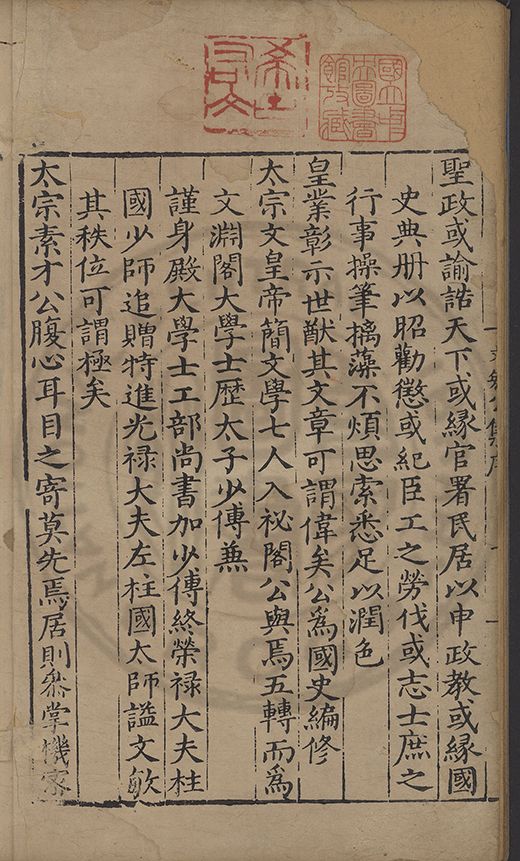 聖政或諭誥天下或緣官署民居以申政教或緣國
史典册以昭勸懲或紀臣工之勞伐或志士庶之
行事操筆摛藻不煩思索悉足以潤色
皇業彰示世猷其文章可謂偉矣公爲國史編修
太宗文皇帝簡文學七人入祕閣公與焉五轉而爲
文淵閣大學士歴太子少傅兼
謹身殿大學士工部尚書加少傅終榮禄大夫柱
國少師追贈特進光禄大夫左柱國太師謚文敏
其秩位可謂極矣
太宗素才公腹心耳目之寄莫先焉居則叅掌機密
國立中央圖書館收藏